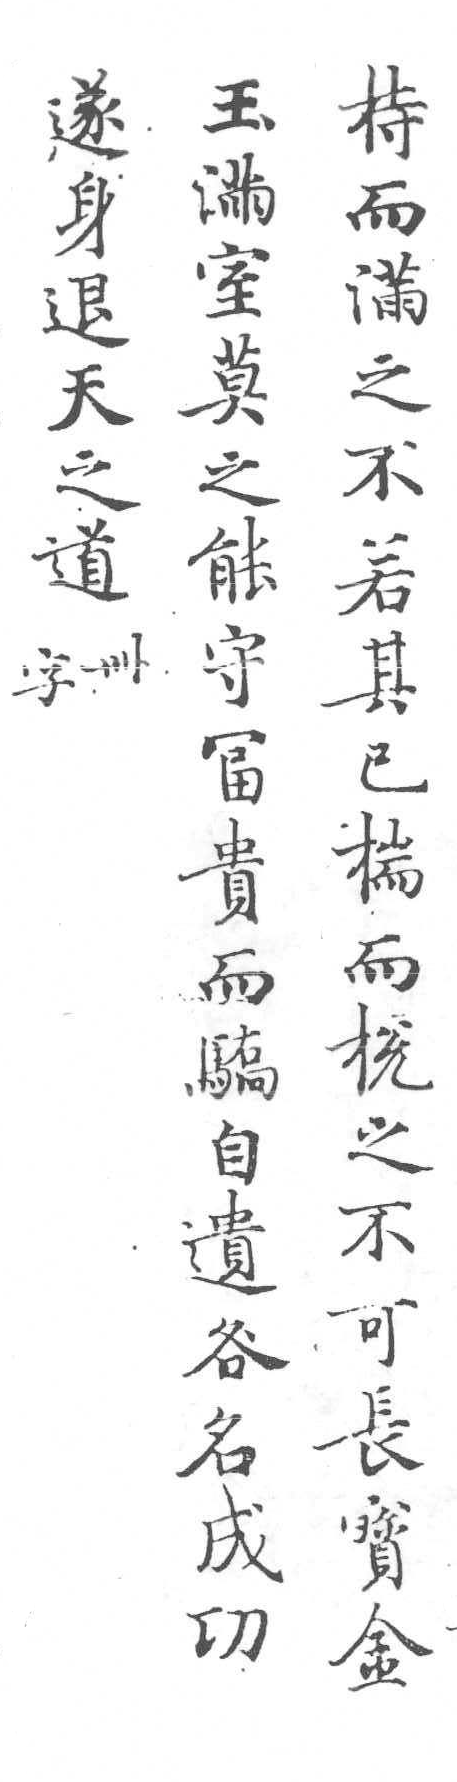 持而滿之不若其已揣而梲之不可長寳金
玉滿室莫之能守冨貴而驕自遺咎名成功
遂身退天之道卌字